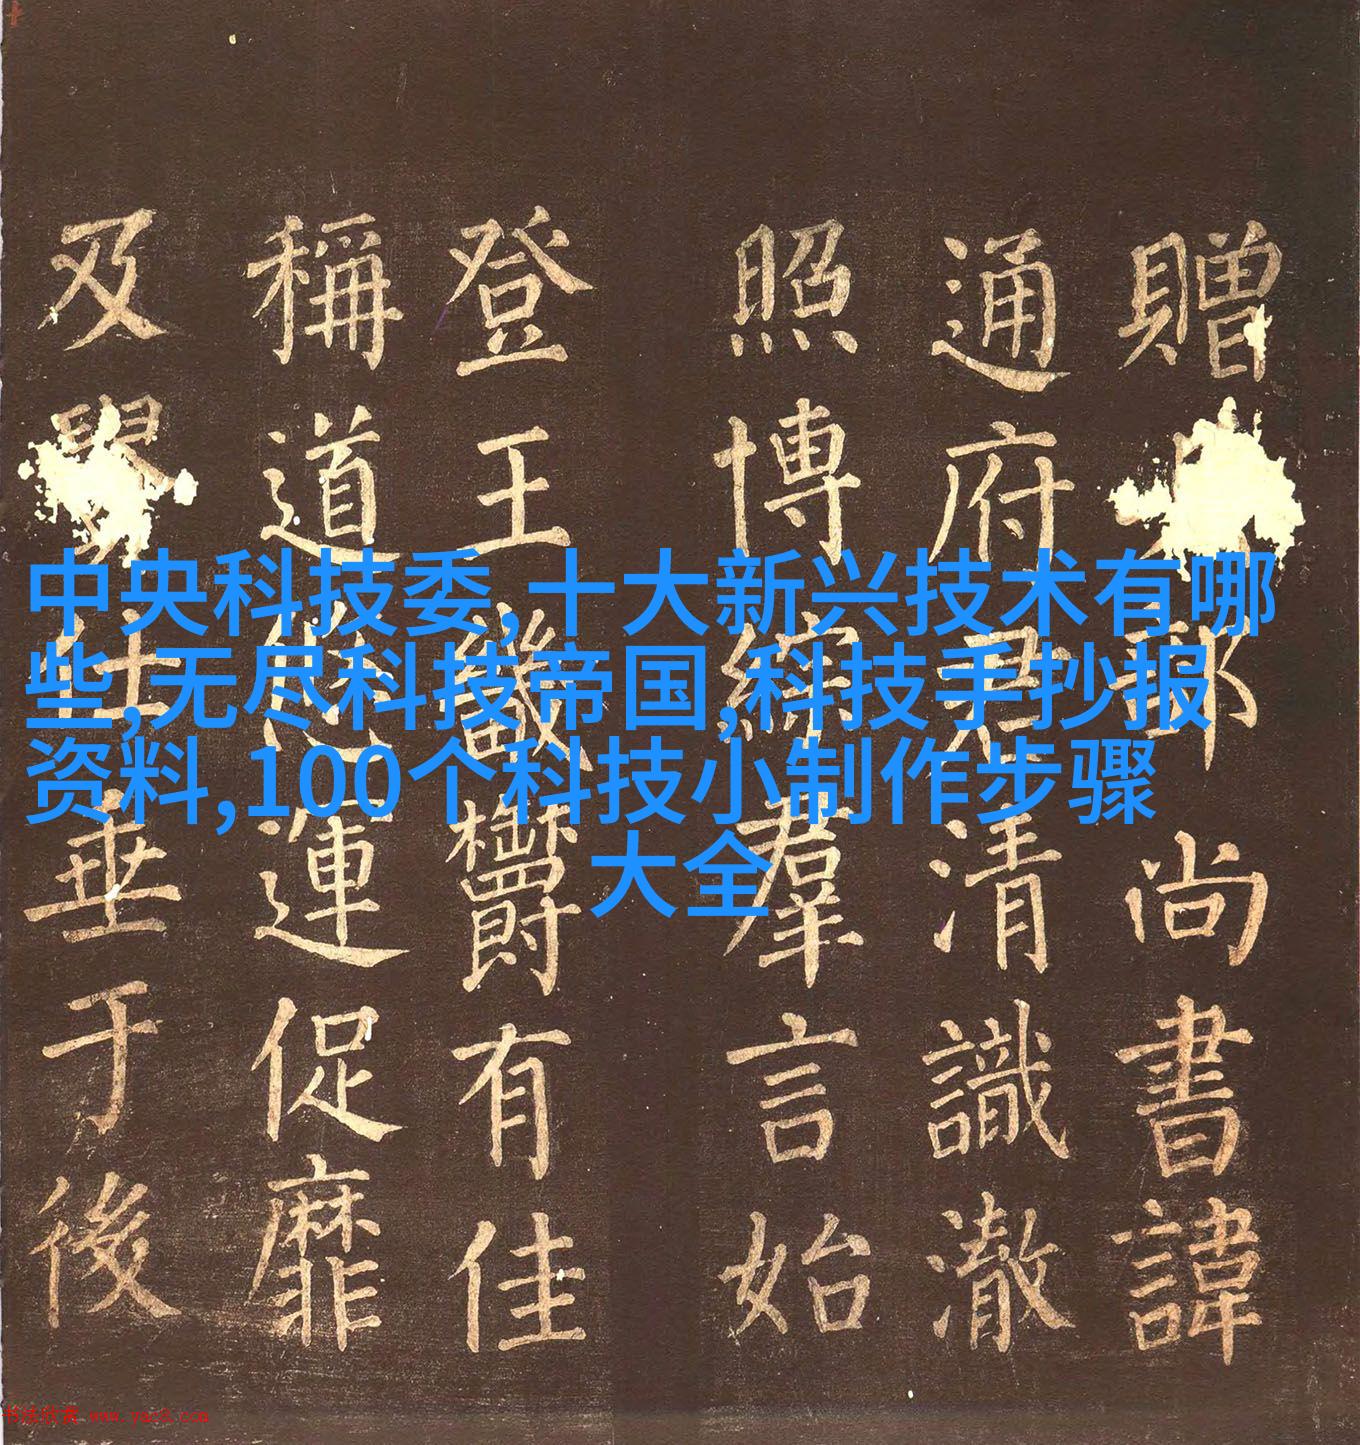 中央科技委,十大新兴技术有哪
些,无尽科技帝国,科技手抄报
资料,100个科技小制作步骤
大全
贈部尚書諱
通府君清識澈
照博綜羣言始
登王畿欝有佳
稱道悠運促靡
及仕垂于後
书法欣赏 www.yac8.com